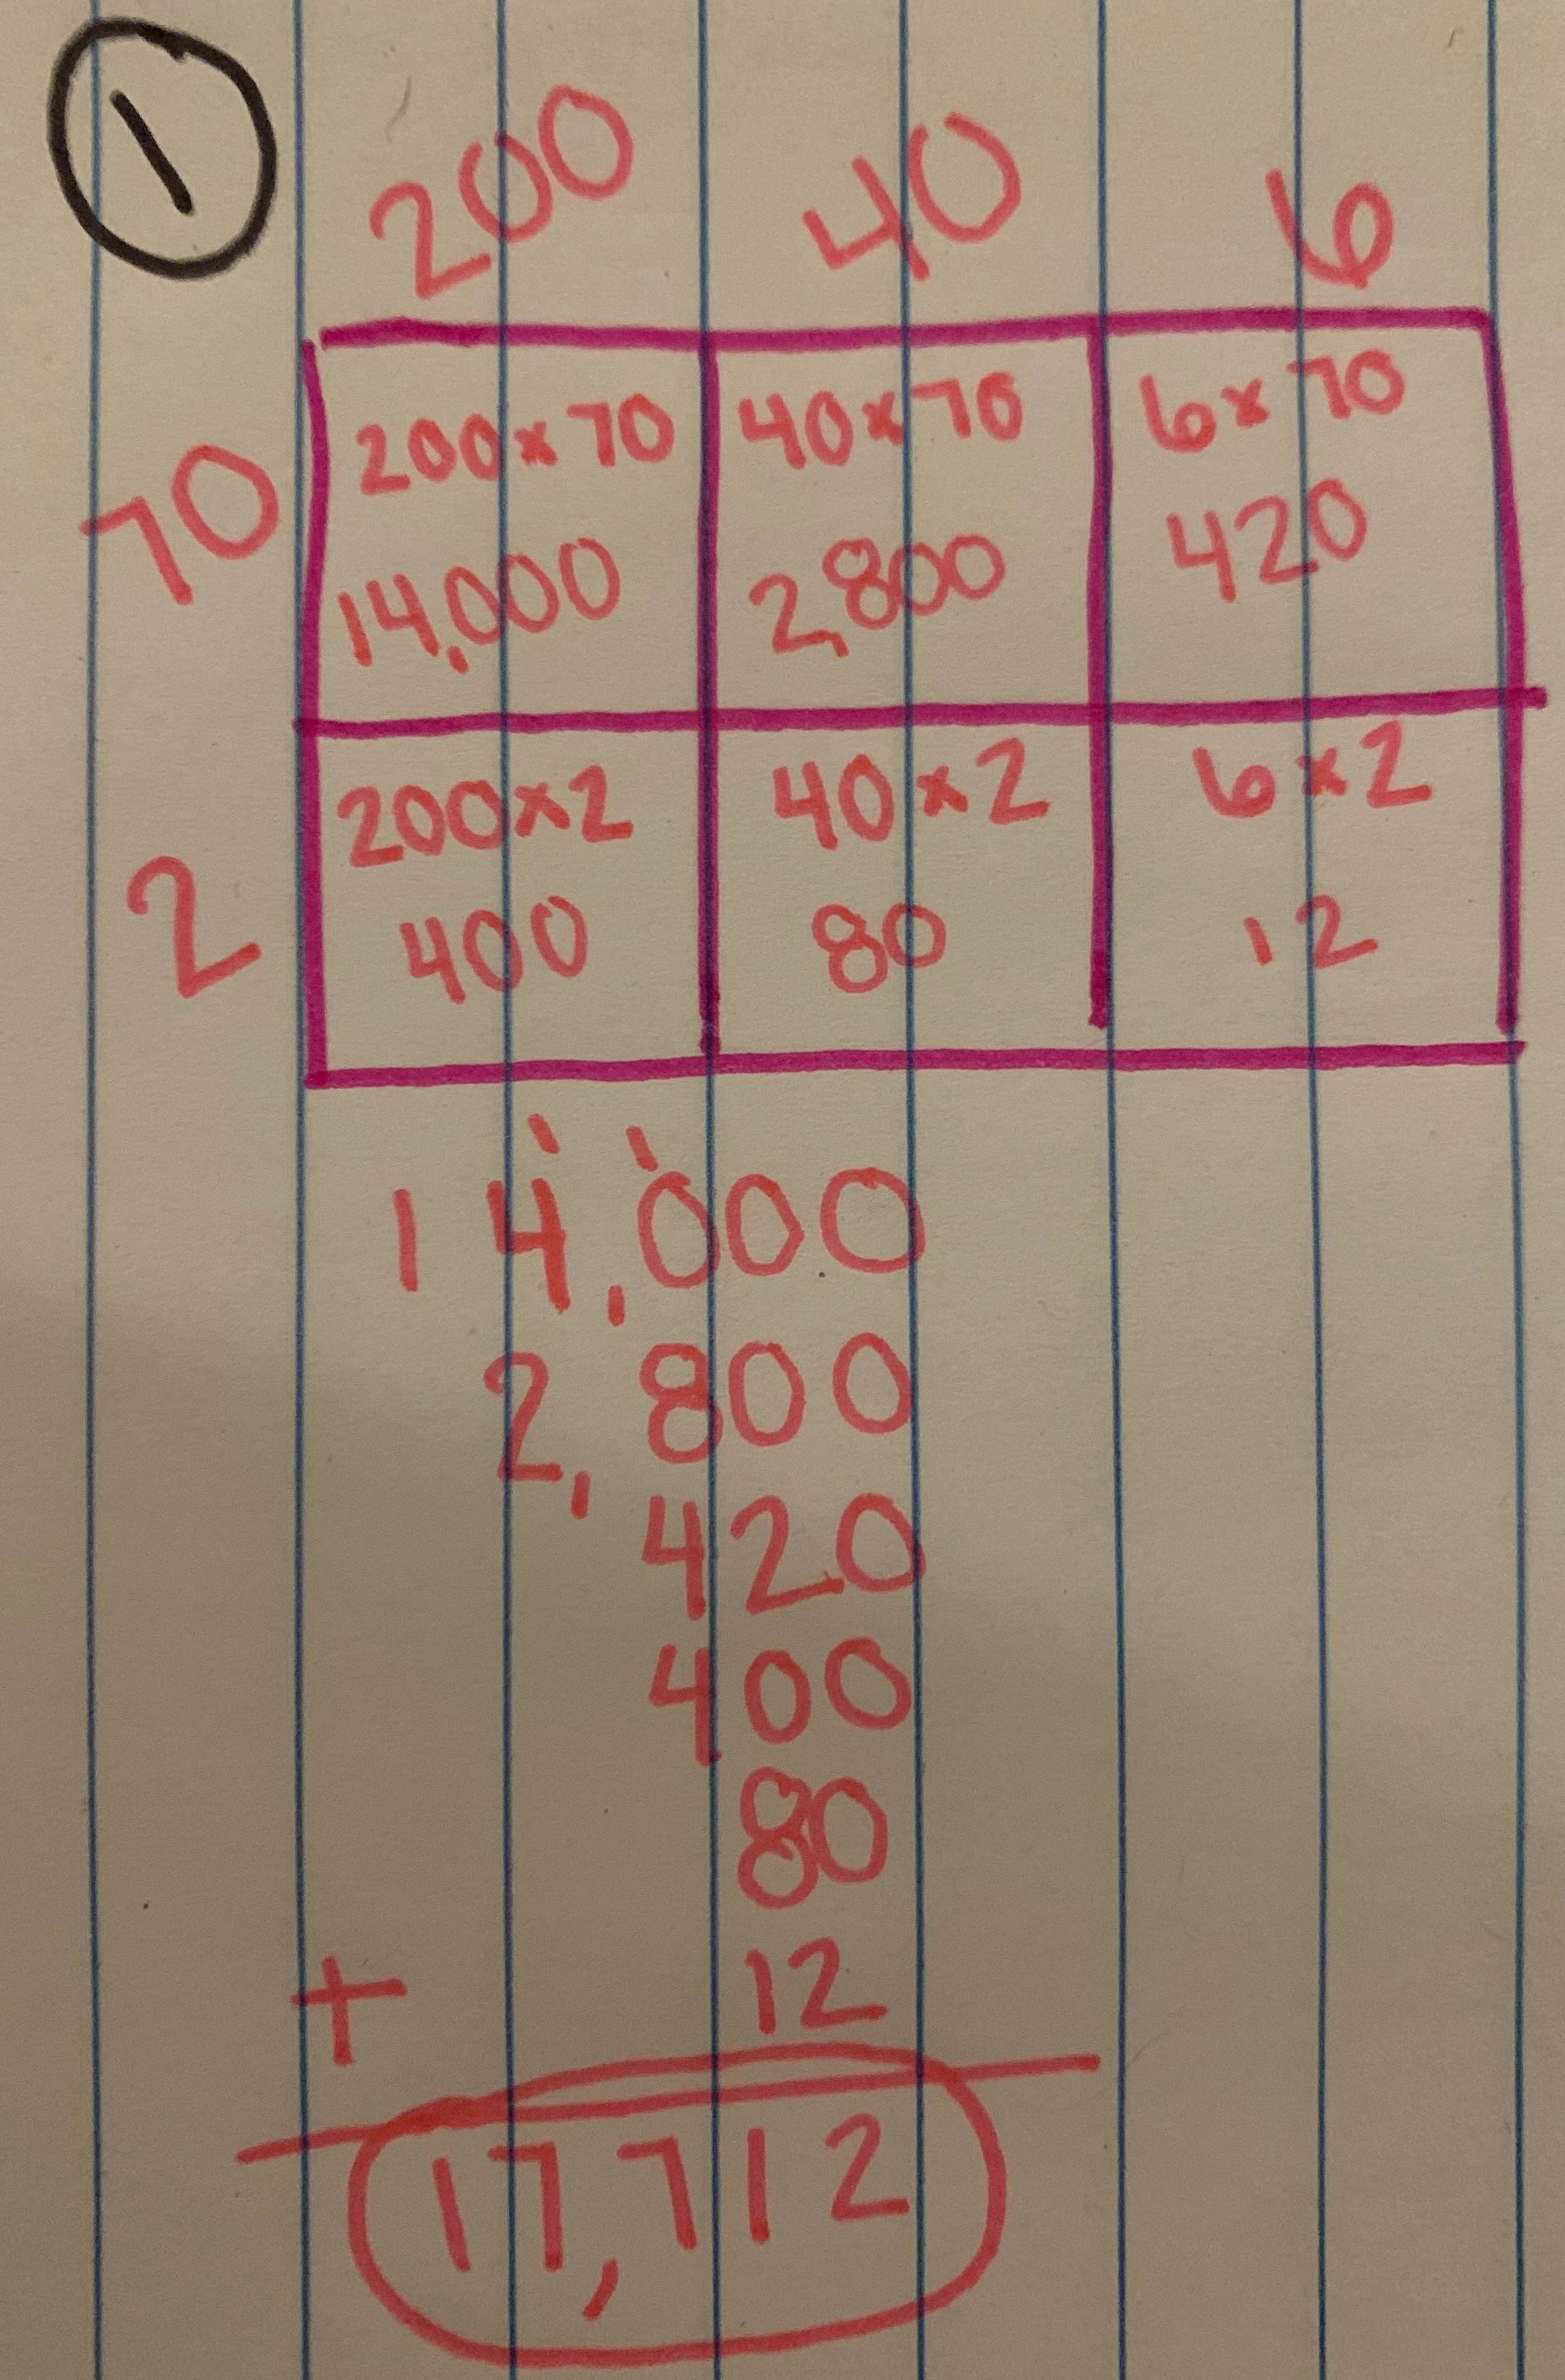 1
200 40 6
70 200×70 40×70 6×70
14,000 2,800 420
2 200×2 40×2 6×2
400 80 12
1 1
14,000
2,800
420
400
80
+ 12
17,712